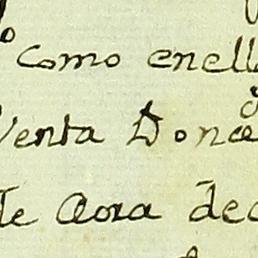 como enell
Venta Donce
de Aora dec